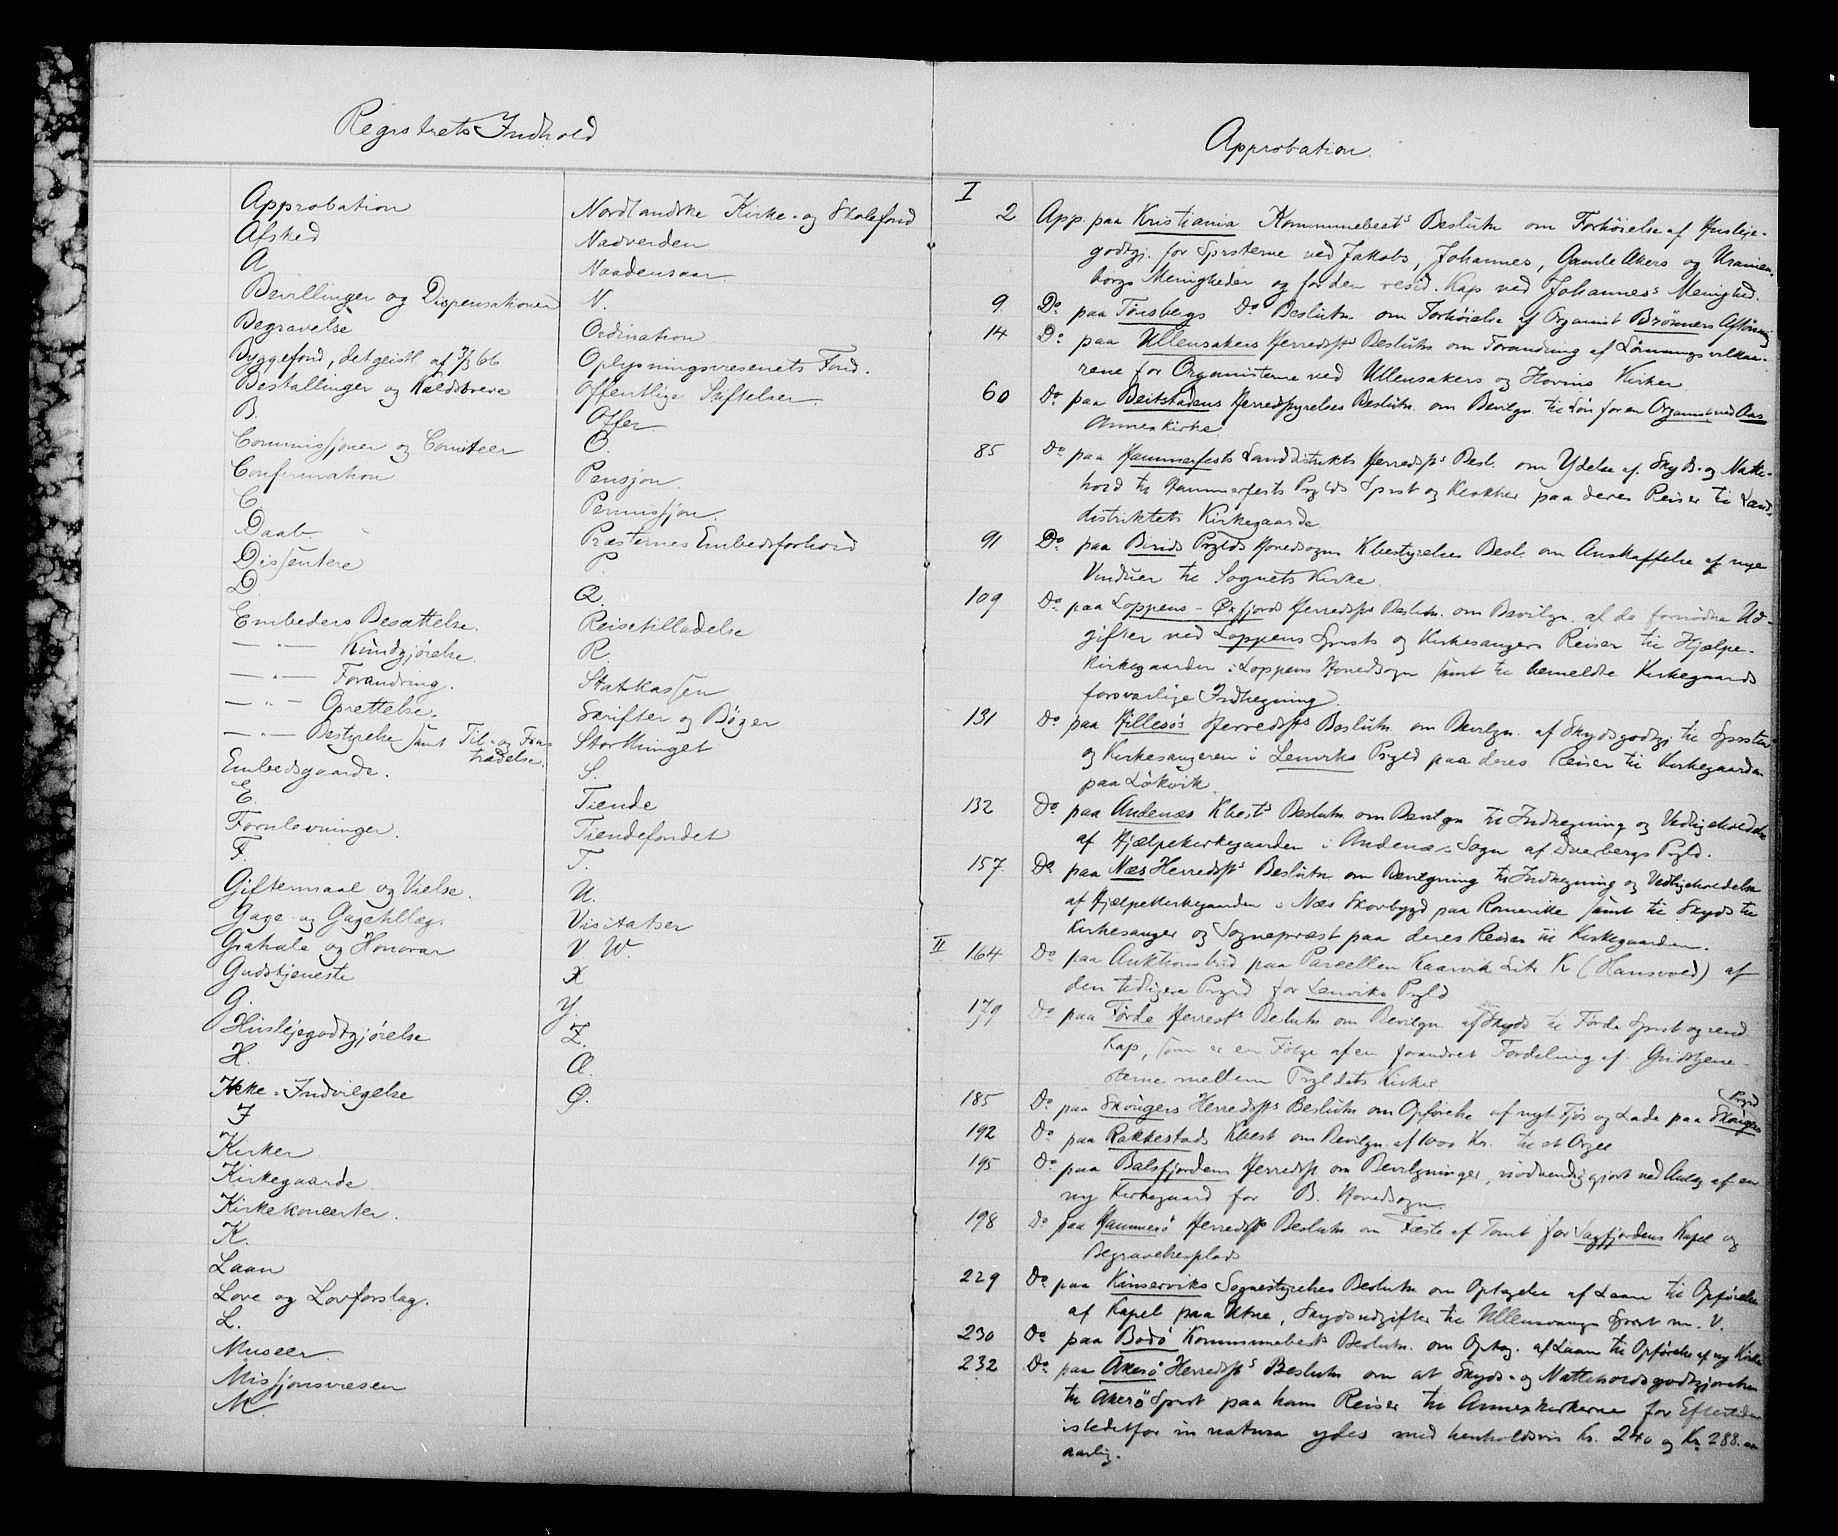 Registrets Indhold
Approbation
Afsked
A
Bevillinger og Dispensationer
Begravelse
Byggefond, det geistl. af 3/3 66
Bestallinger og Kaldsbreve
B.
Commissjoner og Comiteer
Confirmation
C
Daab
Dissentere
D.
Embeders Besættelse.
— " — Kundgjørelse.
— " — Forandring.
— " — Oprettelse.
— " — Bestyrelse samt Til- og Fra-
trædelse.
Embedsgaarde.
E.
Fornlevninger.
F.
Giftermaal og Vielse.
Gage og Gagetillæg.
Gratiale og Honorar
Gudstjeneste
G.
Huslejegodtgjørelse
H.
Ikke-Indvilgelse
I
Kirker
Kirkegaarde
Kirkekoncerter.
K.
Laan
Love og Lovforslag.
L.
Museer.
Missjonsvæsen
M.
Nordlandske Kirke- og Skolefond
Nadverden
Naadensaar
N.
Ordination
Oplysningsvæsenets Fond.
Offentlige Stiftelser
Offer
O.
Pensjon.
Permissjon.
Præsternes Embedsforhold
P
Q.
Reisetilladelse
R.
Statskassen
Skrifter og Bøger
Storthinget
S.
Tiende
Tiendefondet
T.
U.
Visitatser
V W.
X
Y.
Z.
Æ.
Ø.
Approbation.
I
2 App. paa Kristiania Kommunebests Beslutn om Forhøielse af Husleje-
godtgj. for Sprsterne ved Jakobs, Johannes, Gamle Akers og Uranien-
borgs Menigheder og for den resid. Kap ved Johannes's Menighed.
9. Do paa Tønsbergs Do Beslutn. om Forhøielse af Organist Brønners Aflønning
14 Do paa Ullensakers Herredsts Beslutn om Forandring af Lønningsvilkaa-
rene for Organisterne ved Ullensakers og Hovins Kirker
60 Do paa Beitstadens Herredstyrelses Beslutn. om Bevilgn. til Løn for en Organist ved Aas
Annexkirke.
85 Do paa Hammerfests Landdistrikts Herredsts Besl. om Ydelse af Skyds- og Natte-
hold til Hammerfests Prglds Sprst og Klokker paa deres Reiser til Land-
distriktets Kirkegaarde
91 Do paa Birids Prglds Hovedsogns Kbestyrelses Besl. om Anskaffelse af nye
Vinduer til Sognets Kirke.
109 Do paa Loppens-Øxfjord Herredsts Beslutn. om Bevilgn. af de fornødne Ud-
gifter ved Loppens Sprsts og Kirkesangers Reiser til Hjælpe-
kirkegaarden i Loppens Hovedsogn samt til bemeldte Kirkegaards
forsvarlige Indhegning
131 Do paa Hillesøs Herredsts Beslutn om Bevilgn. af Skydsgodtgj. til Sprsten
og Kirkesangeren i Lenviks Prgld paa deres Reiser til Kirkegaarden
paa Løkvik.
132 Do paa Andenæs Kbests Beslutn om Bevilgn til Indhegning og Vedligeholdelse
af Hjælpekirkegaarden i Andenæs Sogn af Dverbergs Prgld.
157 Do paa Næs Herredsts Beslutn om Bevilgning til Indhegning og Vedligeholdelse
af Hjælpekirkegaarden i Næs Skovbygd paa Romerike samt til Skyds til
Kirkesanger og Sogneprest paa deres Reiser til Kirkegaarden.
II 164 Do paa Auktionsbud paa Parcellen Kaarvik Litr. K (Hansvold) af
den tidligere Prgrd for Lenviks Prgld
179 Do paa Førde Herrests Beslutn om Bevilgn. af Skyds til Førde Sprst og resid
Kap, som er en Følge af en forandret Fordeling af Gudstjene-
sterne mellem Prgldets Kirker
185 Do paa Skougers Herredsts Beslutn om Opførelse af nyt Fjøs og Lade paa Skougers
Prgrd
192 Do paa Rakkestads Kbest om Bevilgn. af 1000 Kr. til et Orgel
195 Do paa Balsfjordens Herredst om Bevilgninger, nødvendiggjort ved Anlæg af en
ny Kirkegaard for B. Hovedsogn
198 Do paa Hammerø Herredsts Beslutn om Fæste af Tomt for Sagfjordens Kapel og
Begravelsesplads
229 Do paa Kinserviks Sognestyrelses Beslutn om Optagelse af Laan til Opførelse
af Kapel paa Utne, Skydsudgifter til Ullensvangs Sprst m. V.
230 Do paa Bodø Kommunebests Beslutn. om Optag. af Laan til Opførelse af ny Kirke
232 Do paa Akerø Herredsts Beslutn om at Skyds- og Natteholdsgodtgjørelsen
til Akerø Sprst paa hans Reiser til Annexkirkerne for Eftertiden
istedetfor in natura ydes med henholdsvis Kr. 240 og Kr. 288.
aarlig.